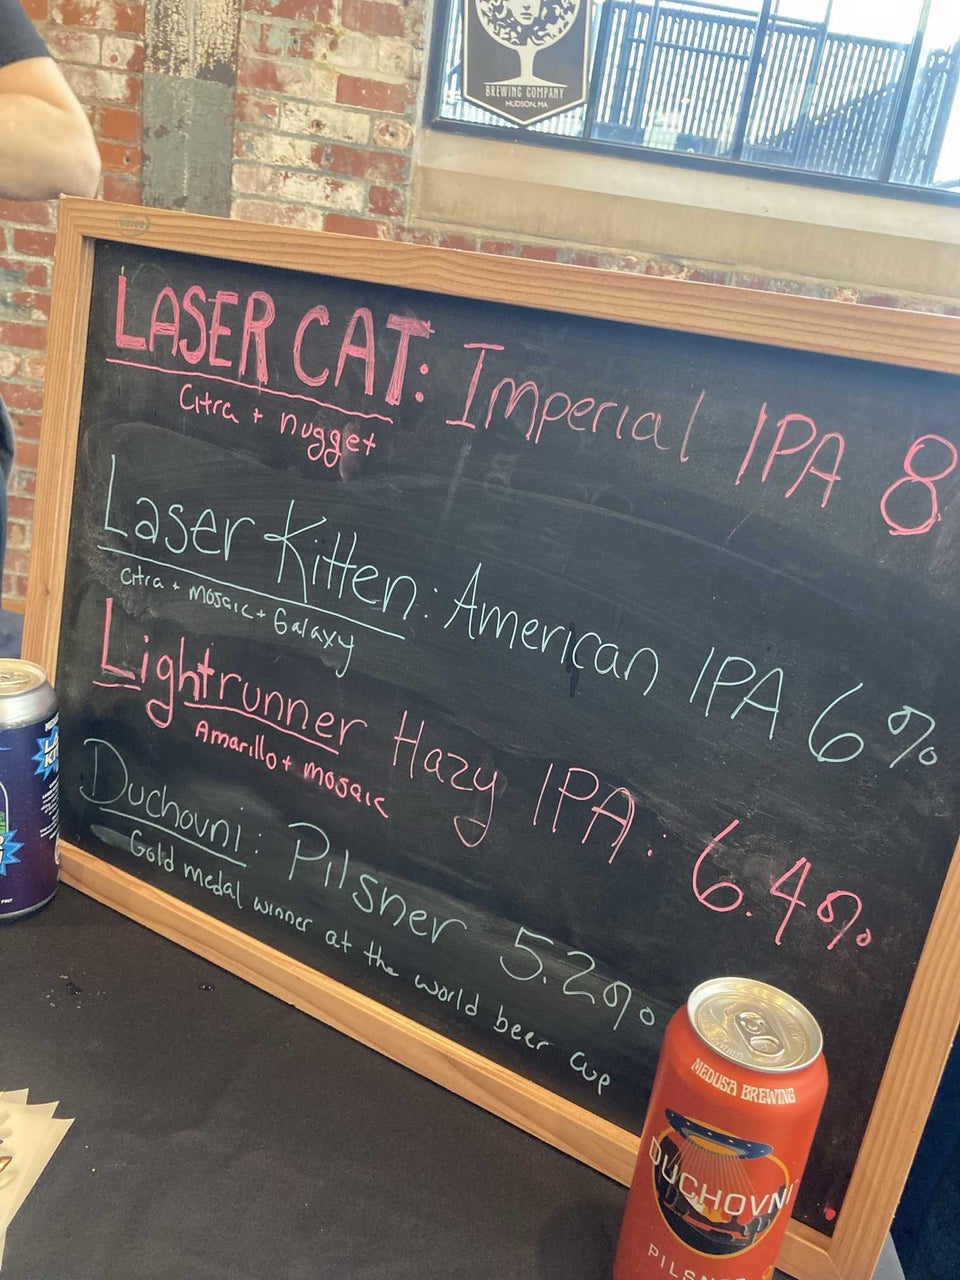 BREWING COMPANY
HUDSON, MA
LASER CAT: Imperial IPA 8
Citra + nugget
Laser Kitten: American IPA 6%
citra + mosaic + Galaxy
Lightrunner Hazy IPA: 6.4%
Amarillo + mosaic
Duchovni: Pilsner 5.2%
Gold medal winner at the world beer cup
MEDUSA BREWING
DUCHOVNI
PILSN